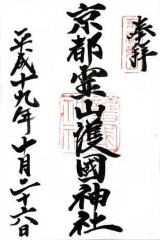 奉拝
京都霊山護國神社
平成十九年十月二十六日